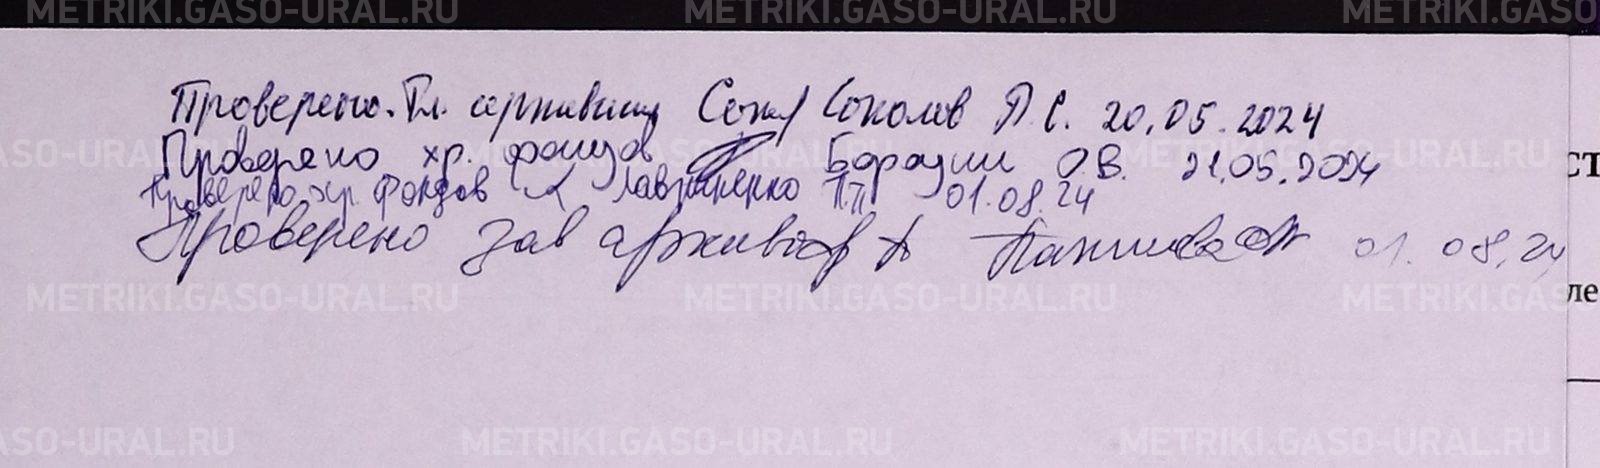 METRIKI.GASO-URAL.RU METRIKI.GASO-URAL.RU METRIKI.GASO
Проверено. Гл. архивист Сокол Соколов П.С. 20.05.2024
Проверено хр. фондов О.В. 21.05.2024
Проверено хр. фондов Лавриненко П.П 01.08.24
Проверено зав архивохр 01.08.24
ст
METRIKI.GASO-URAL.RU METRIKI.GASO-URAL.RU METRIKI.GASO
ле
ASO-URAL.RU METRIKI.GASO-URAL.RU METRIKI.GASO-URAL.RU